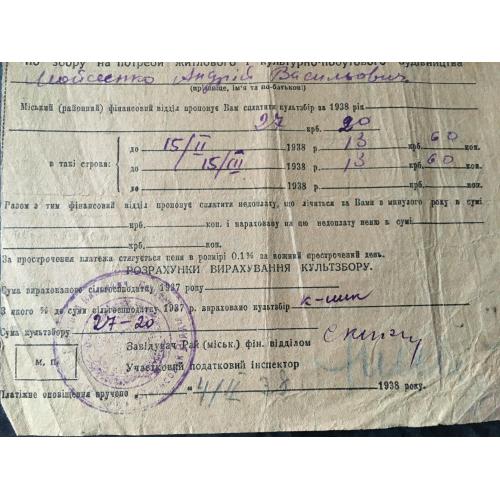 по збору на потреби житлового і культурно-побутового будівництва
Мойсеенко Андрій Васильович
(прізвище, ім'я та по-батькові)
Міський (районний) фінансовий відділ пропонує Вам сплатити культзбір за 1938 рік
27 крб. 20
до 15/II 1938 р 13 крб. 60 коп.
в такі строки: до 15/III 1938 р. 13 крб. 60 коп.
до 1938 р. крб. коп.
Разом з тим фінансовий відділ пропонує сплатити недоплату, що лічиться за Вами з минулого року в сумі
крб. коп. і нараховану на цю недоплату пеню в сумі
крб. коп.
За прострочення платежа стягується пеня в розмірі 0.1% за кожний прострочений день.
РОЗРАХУНКИ ВИРАХУВАННЯ КУЛЬТЗБОРУ.
Сума вирахованого сільгоспподатку 1937 року
З якого % до суми сільгоспподатку 1937 р. вираховано культзбір
Сума культзбору 27-20
Завідувач Рай (міськ.) фін. відділом
М. П. Участковий податковий інспектор
Платіжне оповіщення вручено 4/II 38 1938 року.